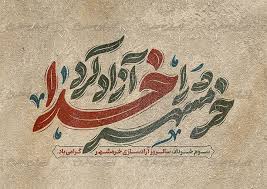 خرمشهر را خدا آزاد کرد
سوم خرداد، سالروز آزادسازی خرمشهر گرامی باد